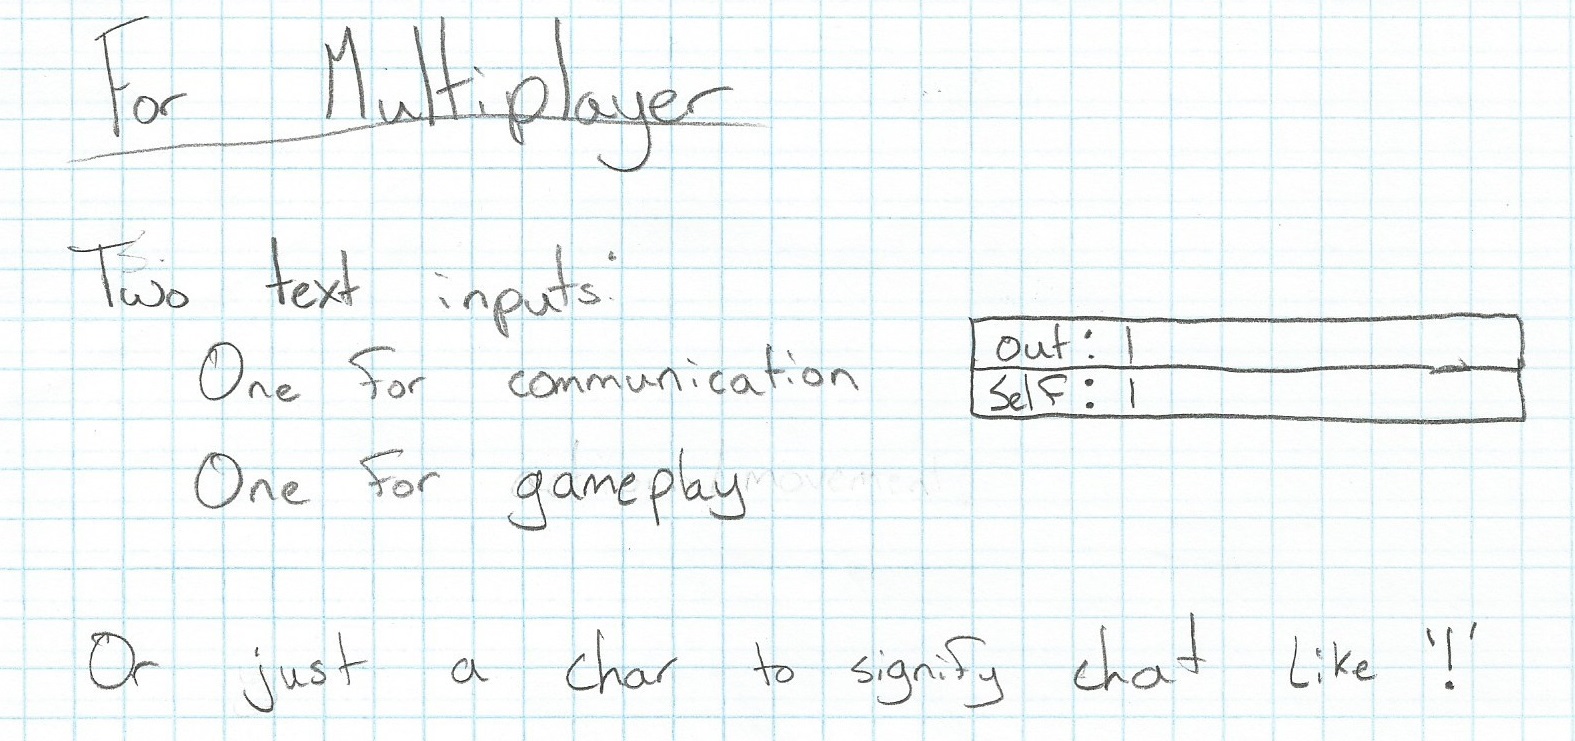 For Multiplayer
Two text inputs:
One for communication
out: |
Self: |
One for gameplay
Or just a char to signify chat like '!'